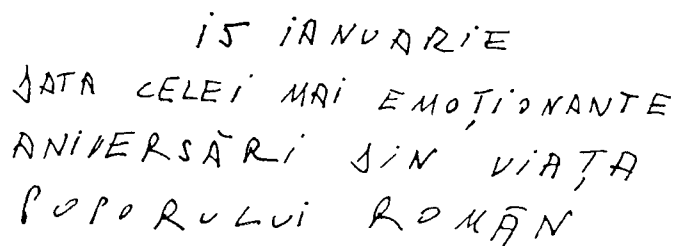 15 IANUARIE
DATA CELEI MAI EMOȚIONANTE
ANIVERSĂRI DIN VIAȚA
POPORULUI ROMÂN